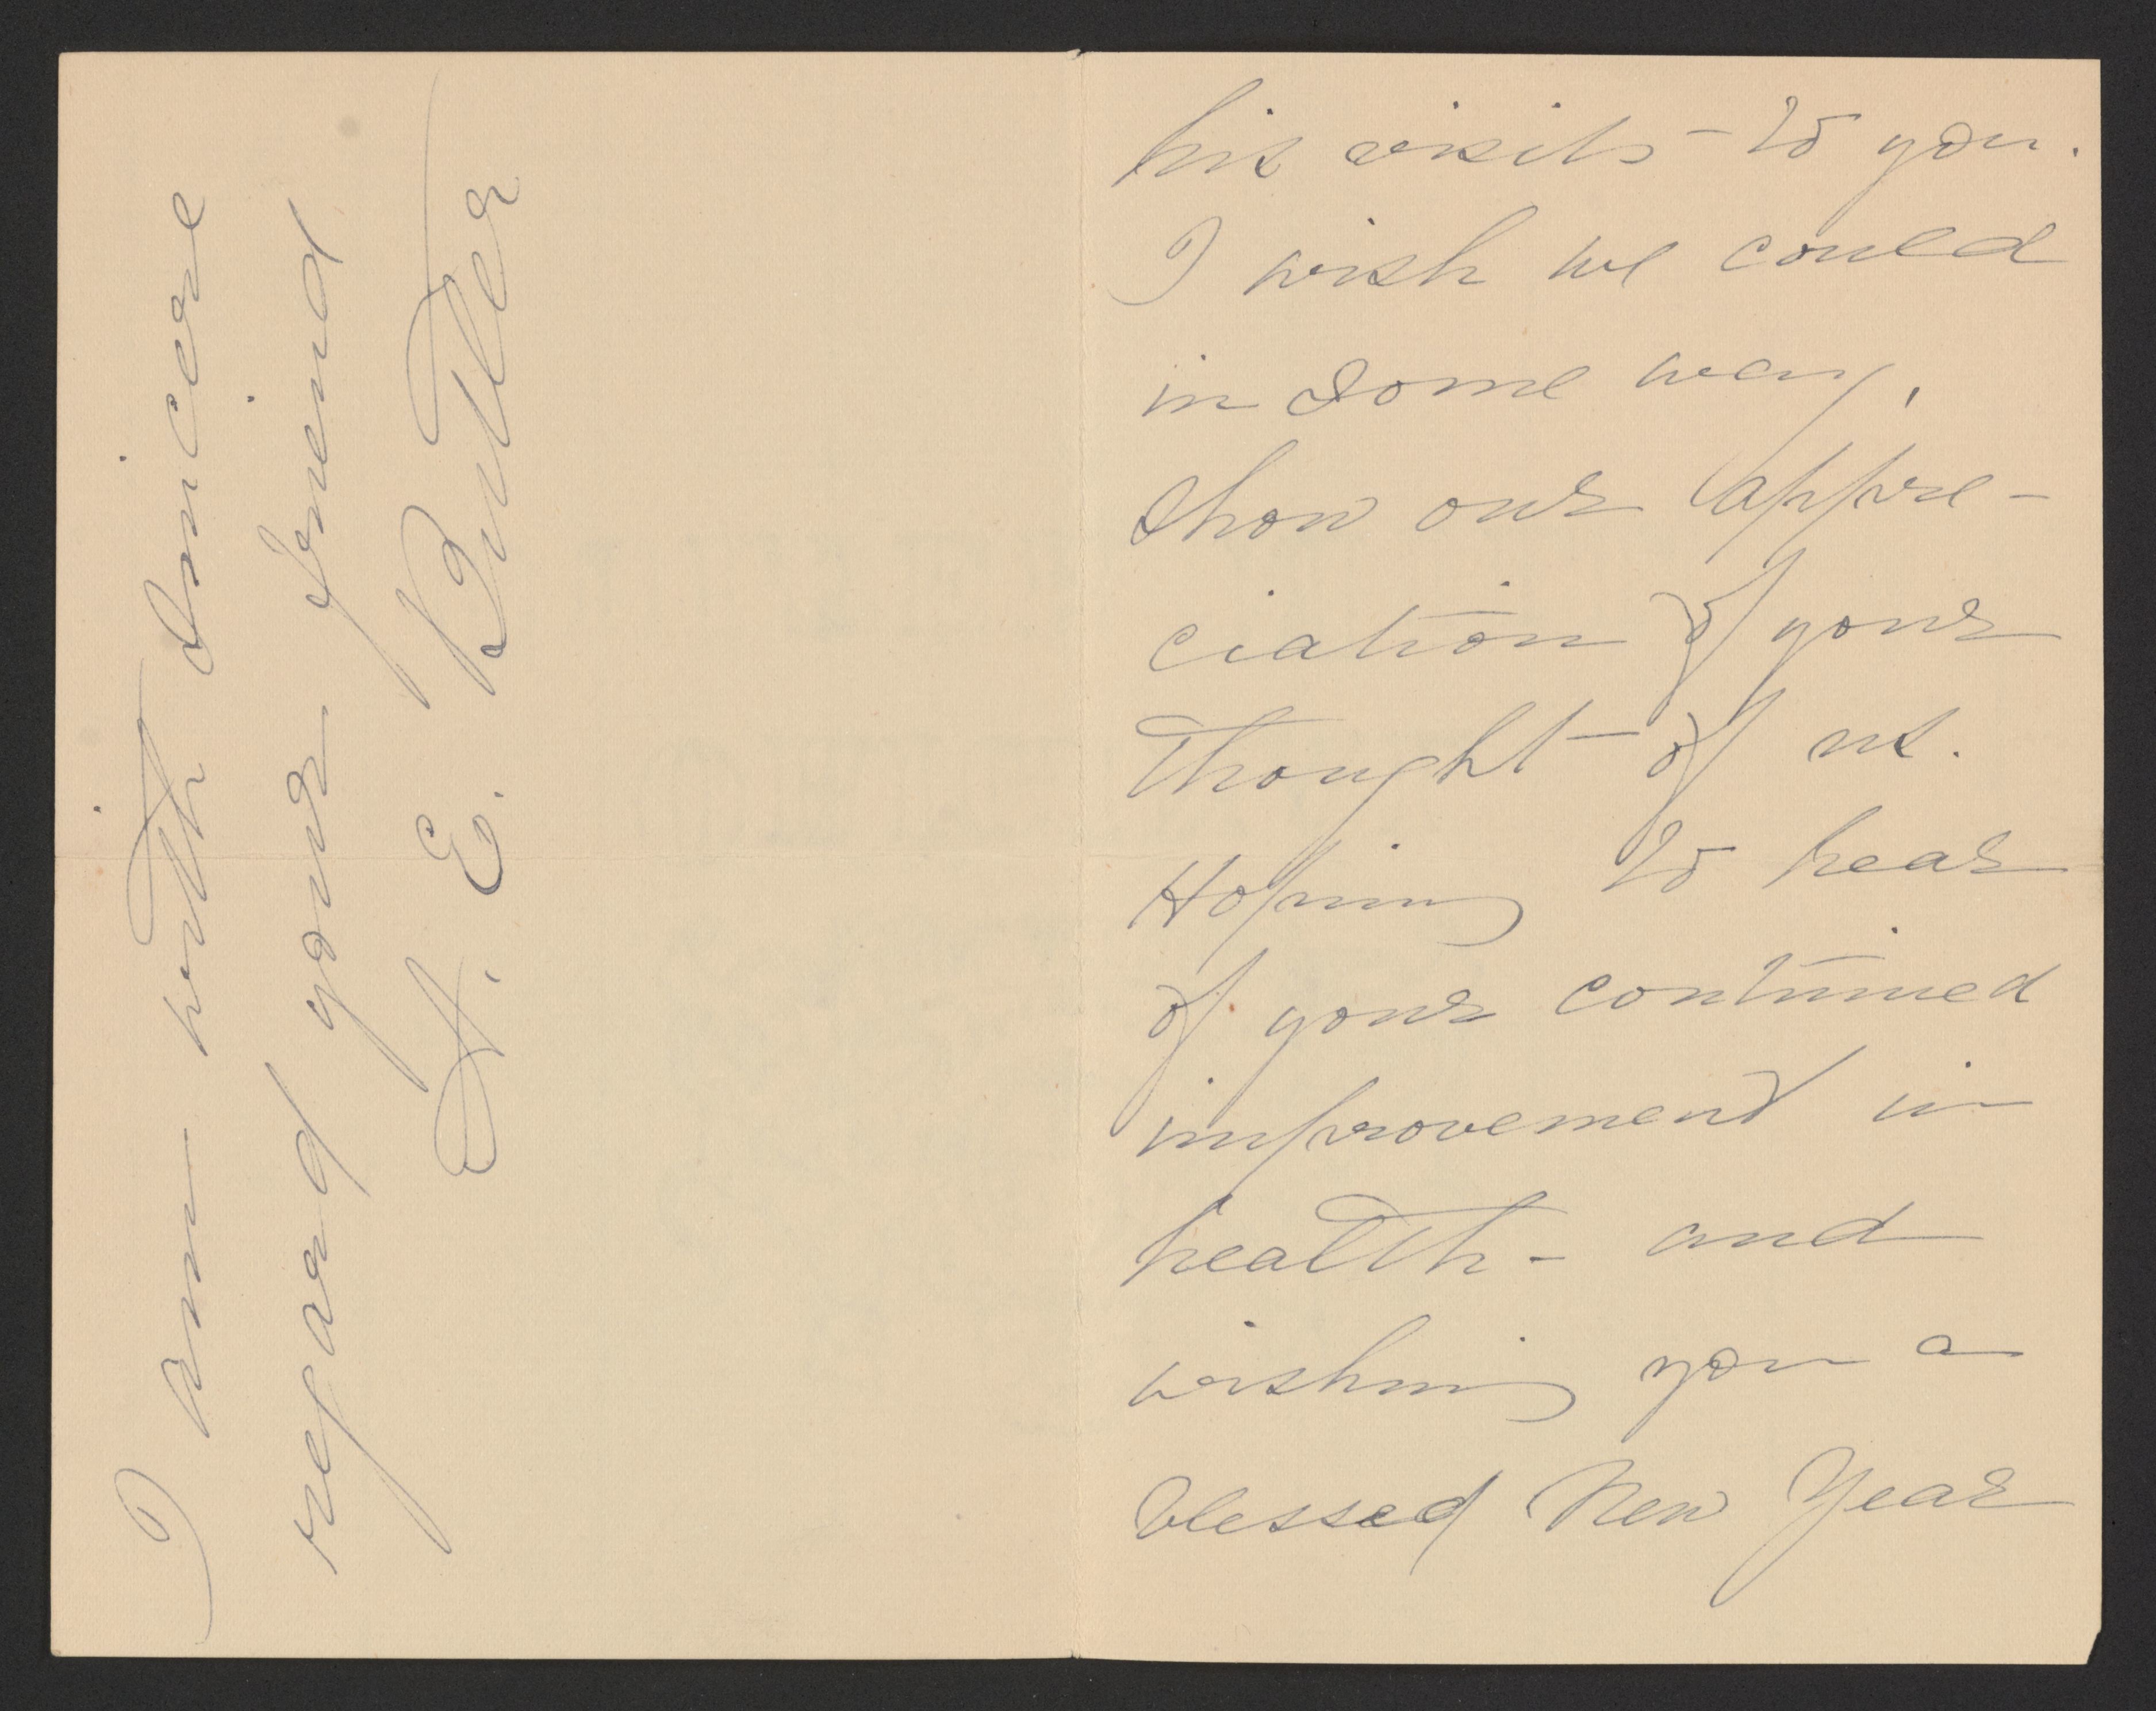 his visits - to you.
I wish we could
in some way,
show our appre-
ciation of your
thought - of us.
Hoping to hear
of your continued
improvement in
health - and
wishing you a
blessed New Year
I am with sincere
regard your friend
A. E. Butler